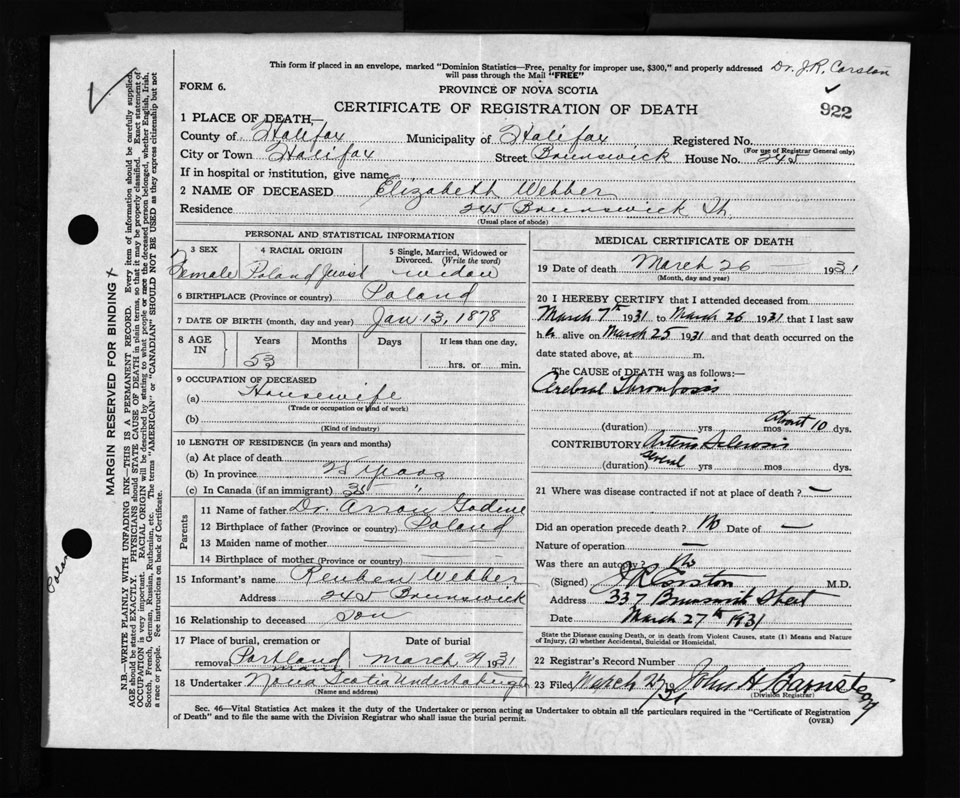 This form if placed in an envelope, marked "Dominion Statistics—Free, penalty for improper use, $300," and properly addressed Dr. J.R. Corston
will pass through the Mail "FREE"
FORM 6.
PROVINCE OF NOVA SCOTIA
CERTIFICATE OF REGISTRATION OF DEATH
922
1 PLACE OF DEATH—
County of Halifax Municipality of Halifax Registered No.
(For use of Registrar General only)
City or Town Halifax Street Brunswick House No. 245
If in hospital or institution, give name
2 NAME OF DECEASED Elizabeth Webber
Residence 245 Brunswick St.
(Usual place of abode)
PERSONAL AND STATISTICAL INFORMATION
3 SEX Female
4 RACIAL ORIGIN Poland Jewish
5 Single, Married, Widowed or Divorced. (Write the word) widow
6 BIRTHPLACE (Province or country) Poland
7 DATE OF BIRTH (month, day and year) Jan 13, 1878
8 AGE IN Years Months Days If less than one day,
53 hrs. or min.
9 OCCUPATION OF DECEASED
(a) Housewife
(Trade or occupation or kind of work)
(b)
(Kind of industry)
10 LENGTH OF RESIDENCE (in years and months)
(a) At place of death
(b) In province 25 years
(c) In Canada (if an immigrant) 35 "
Parents
11 Name of father Dr. Arron Godine
12 Birthplace of father (Province or country) Poland
13 Maiden name of mother
14 Birthplace of mother (Province or country)
15 Informant's name Reuben Webber
Address 245 Brunswick
16 Relationship to deceased Son
17 Place of burial, cremation or removal Date of burial
Portland March 29 1931
18 Undertaker Nova Scotia Undertaking
(Name and address)
MEDICAL CERTIFICATE OF DEATH
19 Date of death March 26 1931
(Month, day and year)
20 I HEREBY CERTIFY that I attended deceased from
March 7th 1931 to March 26 1931 that I last saw
her alive on March 25 1931 and that death occurred on the
date stated above, at m.
The CAUSE OF DEATH was as follows:—
Cerebral Thrombosis
(duration) yrs mos About 10 dys.
CONTRIBUTORY Arterio Sclerosis
(duration) several yrs mos dys.
21 Where was disease contracted if not at place of death? —
Did an operation precede death? No Date of —
Nature of operation —
Was there an autopsy? No
(Signed) J R Corston M.D.
Address 337 Brunswick Street
Date March 27th 1931
State the Disease causing Death, or in death from Violent Causes, state (1) Means and Nature
of Injury, (2) whether Accidental, Suicidal or Homicidal.
22 Registrar's Record Number
23 Filed March 27 1931 John H Barnstead
(Division Registrar)
Sec. 46—Vital Statistics Act makes it the duty of the Undertaker or person acting as Undertaker to obtain all the particulars required in the "Certificate of Registration
of Death" and to file the same with the Division Registrar who shall issue the burial permit.
(OVER)
MARGIN RESERVED FOR BINDING
N.B.—WRITE PLAINLY WITH UNFADING INK—THIS IS A PERMANENT RECORD. Every item of information should be carefully supplied.
AGE should be stated EXACTLY. PHYSICIANS should STATE CAUSE OF DEATH in plain terms, so that it may be properly classified. Exact statement of
OCCUPATION is very important. RACIAL ORIGIN will be described by stating to what people or race the deceased person belonged, whether English, Irish,
Scotch, French, German, Russian, Ruthenian, etc. The terms "AMERICAN" or "CANADIAN" SHOULD NOT BE USED as they express citizenship but not
a race or people. See instructions on back of Certificate.